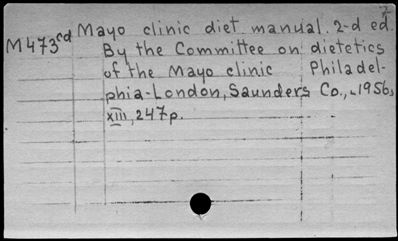 7
Mayo clinic diet manual. 2-d ed.
M473cd
By the Committee on dietetics
of the Mayo clinic Philadel-
phia-London, Saunders Co., 1956,
XIII, 247p.